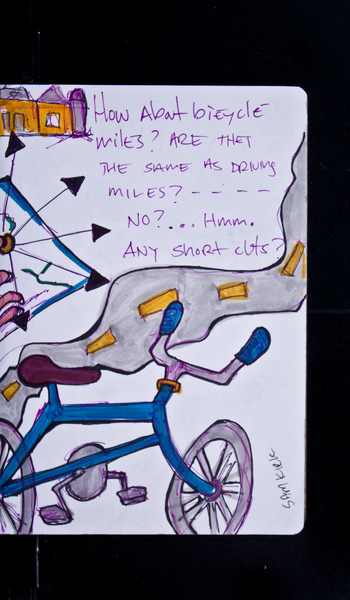 How About bicycle
miles? ARE THEY
THE SAME AS DRIVING
MILES? - - - -
NO?... Hmm.
ANY short cuts?
SAM KIRK